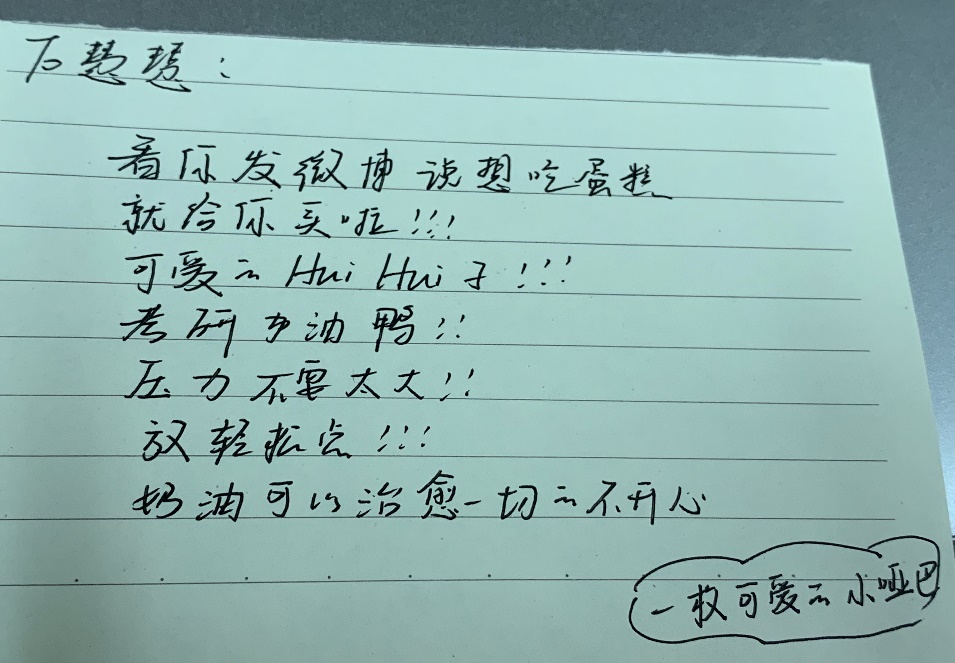 To 慧慧：
看你发微博说想吃蛋糕
就给你买啦!!!
可爱の Hui Hui 子!!!
考研加油鸭!!
压力不要太大!!
放轻松点!!!
奶油可以治愈一切の不开心
一枚可爱の小哑巴